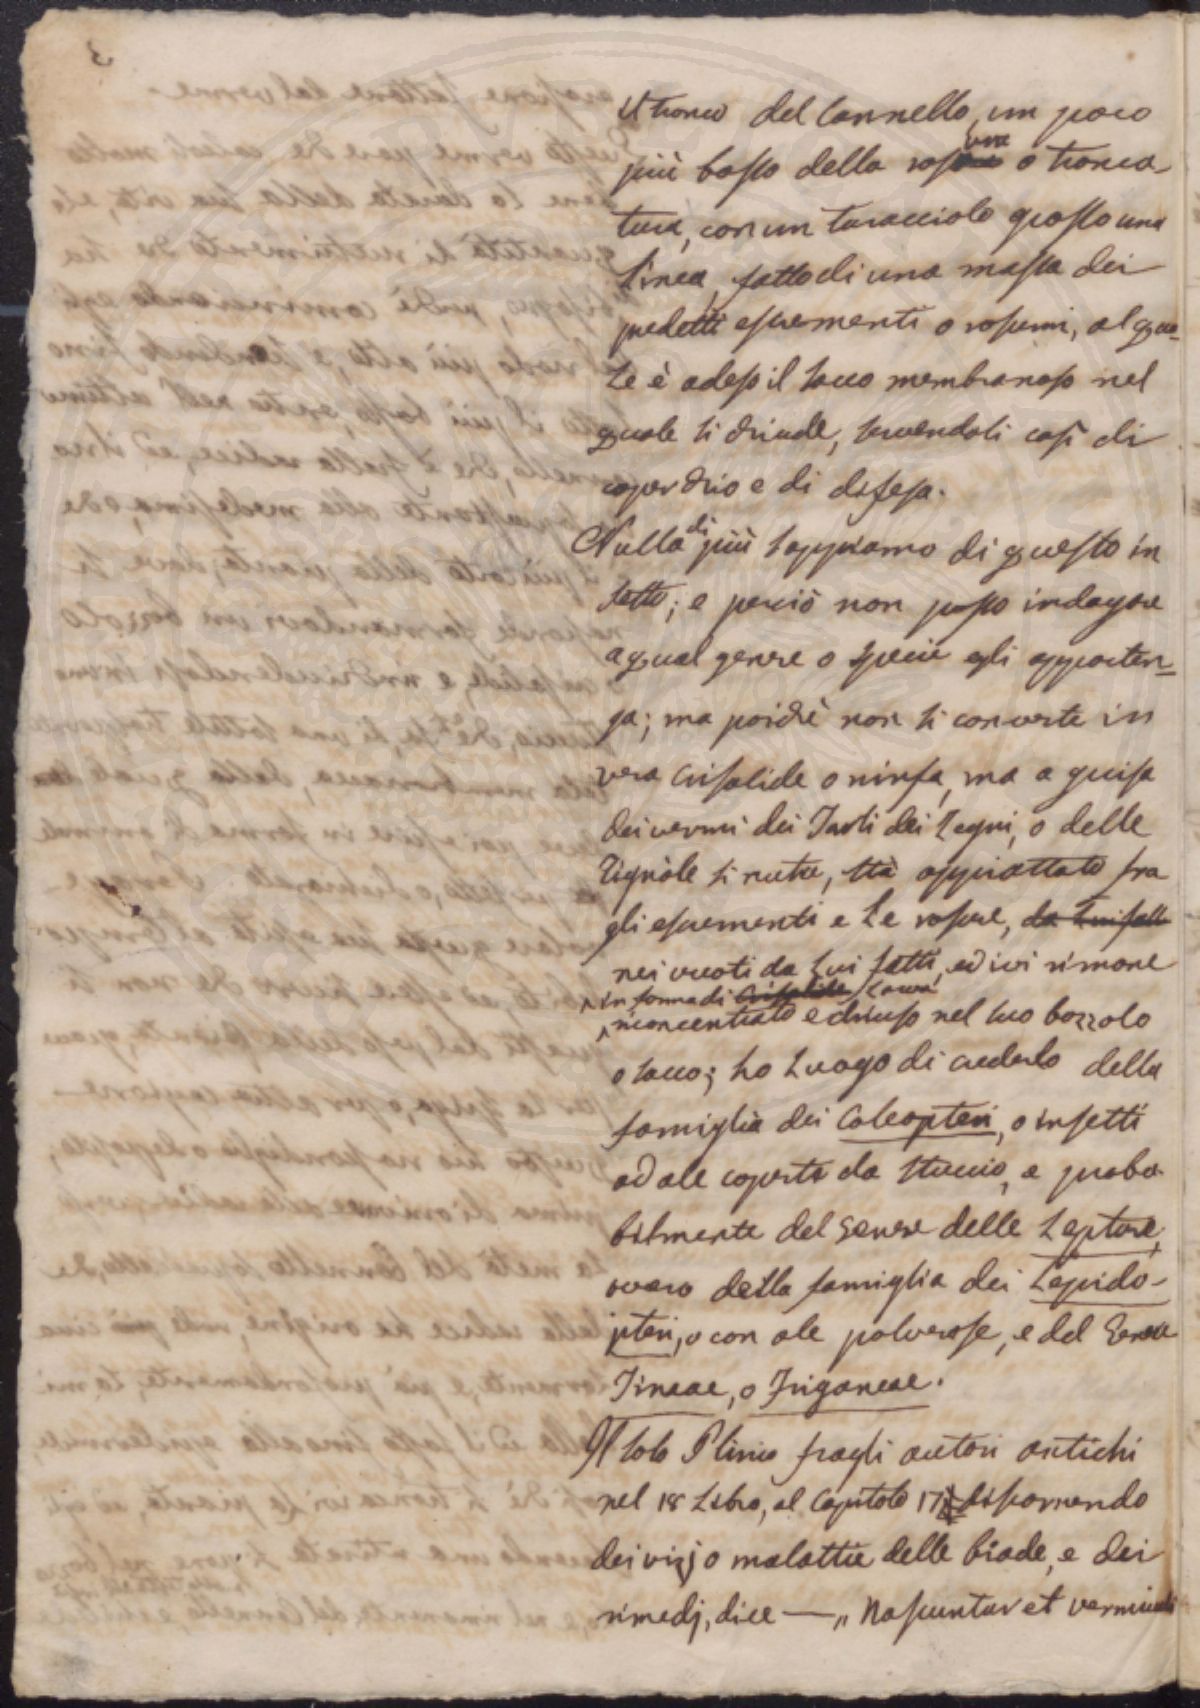 il tronco del Cannello, un poco
più basso della rosura o tronca-
tura, con un turacciolo grosso una
linea, fatto di una massa dei
predetti escrementi o rosumi, al qua-
le è adeso il sacco membranoso nel
quale si chiude, servendoli così di
coperchio e di difesa.
Nulla di più sappiamo di questo in
setto; e perciò non posso indagare
a qual genere o specie egli apparten-
ga; ma poichè non si converte in
vera crisalide o ninfa, ma a guisa
dei vermi dei Tarli dei Legni, o delle
Tignòle si nutre, stà appiattato fra
gli escrementi e le rosure, da Lui fatt
nei vuoti da Lui fatti, ed ivi rimane
in forma di Crisalide Larva
riconcentrato e chiuso nel suo bozzolo
o sacco; ho Luogo di crederlo della
famiglia dei Coleopteri, o insetti
ad ale coperte da stuccio, e proba-
bilmente del Genere delle Lepture,
ovvero della famiglia dei Lepido-
pteri, o con ale polverose, e del Genere
Tineae, o Friganeae.
Il solo Plinio fragli autori antichi
nel 18 Libro, al Capitolo 17 discorrendo
dei vizj o malattie delle biade, e dei
rimedj, dice — „ Nascuntur et vermiculi
3